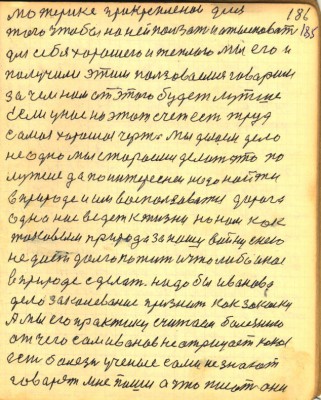 материке прикрепленой для 186
того чтобы на ней ползать и отыскивать 185
для себя хорошего и теплого мы его и
получили этим ползоваемся говорим
за чем нам от этого будет лутше
если у нас на этот счет ест труд
самая хорошая черта. Мы делаем дело
не одно мы стараемся делать это по
лутше да поинтересней надо найти
в природе и им воспользоватся дорога
одна нас ведет к жизни но нам как
таковым природа за нашу войну с нею
не дает долго пожит и что либо иное
в природе сделат. надо бы иванова
дело закаливание признат как законку
А мы его практику считаем болезнию
от чего сам иванов не отрицает какая
ест болезн ученые сами не знают
говорят мне пиши а что писат они